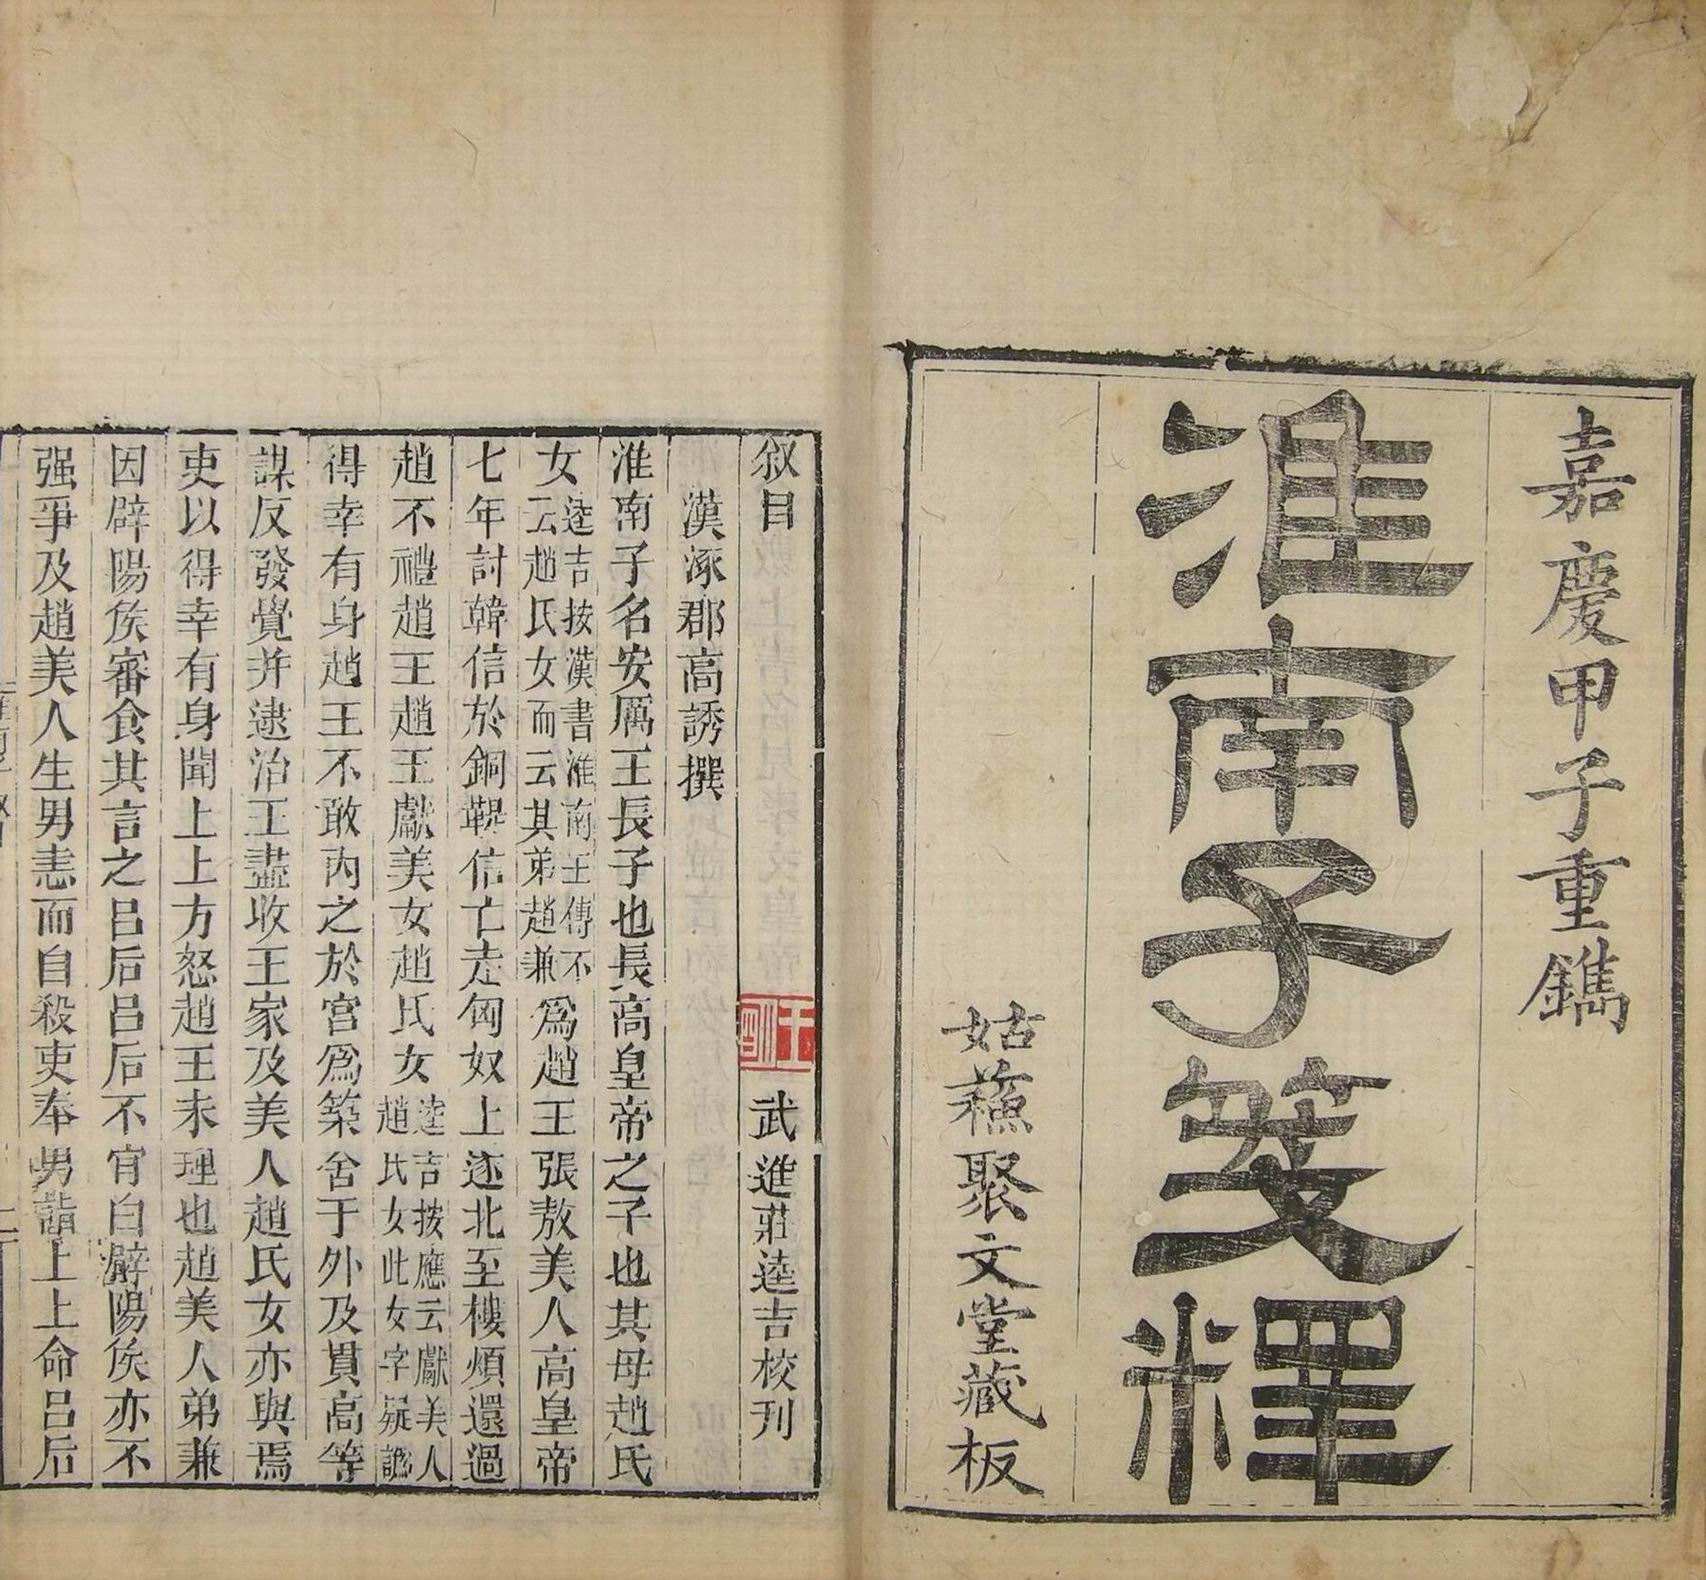 嘉慶甲子重鐫
淮南子箋釋
姑蘇聚文堂藏板
敘目
武進莊逵吉校刊
漢涿郡高誘撰
淮南子名安厲王長子也長高皇帝之子也其母趙氏
女逵吉按漢書淮南王傳不云趙氏女而云其弟趙兼為趙王張敖美人高皇帝
七年討韓信於銅鞮信亡走匈奴上逐北至樓煩還過
趙不禮趙王趙王獻美女趙氏女逵吉按應云獻美人趙氏女此女字疑譌
得幸有身趙王不敢內之於宮爲築舍于外及貫高等
謀反發覺并逮治王盡收王家及美人趙氏女亦與焉
吏以得幸有身聞上上方怒趙王未理也趙美人弟兼
因辟陽矦審食其言之呂后呂后不肎白辟陽矦亦不
强爭及趙美人生男恚而自殺吏奉男詣上上命呂后